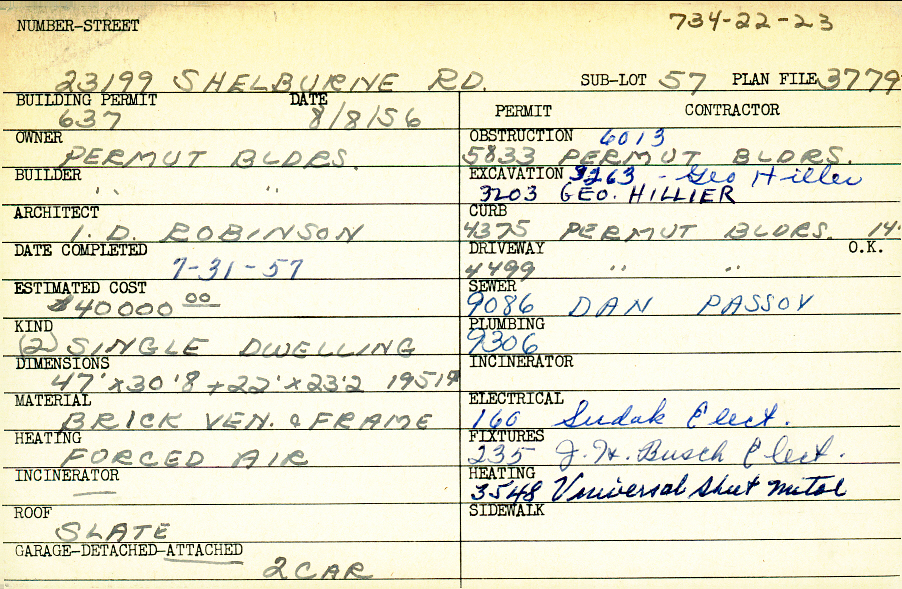 NUMBER-STREET
734-22-23
23199 SHELBURNE RD. SUB-LOT 57 PLAN FILE 3779
BUILDING PERMIT DATE
637 8/8/56
OWNER
PERMUT BLDRS.
BUILDER
" "
ARCHITECT
I. D. ROBINSON
DATE COMPLETED
7-31-57
ESTIMATED COST
$40000 00
KIND
(2) SINGLE DWELLING
DIMENSIONS
47'x30'8 + 22'x23'2 1951
MATERIAL
BRICK VEN. & FRAME
HEATING
FORCED AIR
INCINERATOR
—
ROOF
SLATE
GARAGE-DETACHED-ATTACHED
2 CAR
PERMIT CONTRACTOR
OBSTRUCTION 6013
5833 PERMUT BLDRS.
EXCAVATION 3263 - Geo Hiller
3203 GEO. HILLIER
CURB
4375 PERMUT BLDRS. 14.
DRIVEWAY O.K.
4499 " "
SEWER
9086 DAN PASSOV
PLUMBING
9306
INCINERATOR
ELECTRICAL
160 Sudak Elect.
FIXTURES
235 J. H. Busch Elect.
HEATING
3548 Universal Sheet Metal
SIDEWALK